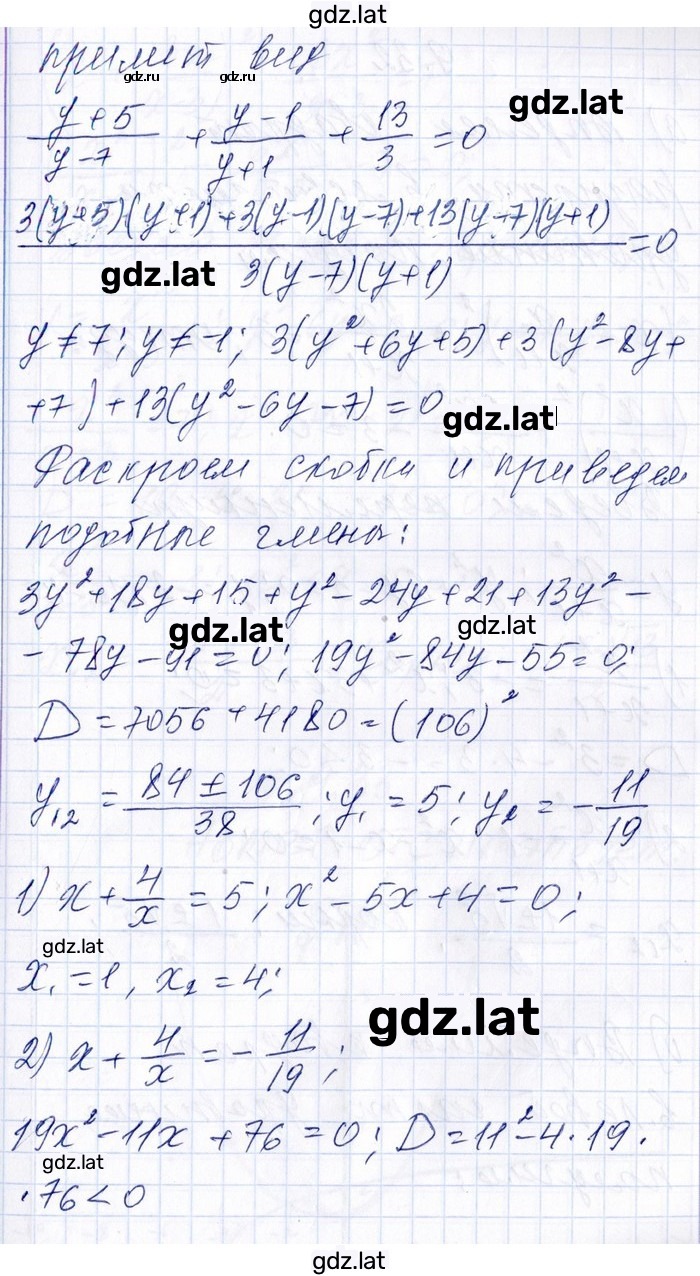 gdz.lat
примет вид
gdz.ru gdz.ru
(y+5)/(y-7) + (y-1)/(y+1) + 13/3 = 0
gdz.lat
(3(y+5)(y+1)+3(y-1)(y-7)+13(y-7)(y+1))/(3(y-7)(y+1)) = 0
gdz.lat
y≠7; y≠-1; 3(y²+6y+5)+3(y²-8y+
+7)+13(y²-6y-7)=0
gdz.lat
Раскроем скобки и приведем
подобные члены:
3y²+18y+15+y²-24y+21+13y²-
gdz.lat gdz.lat
-78y-91=0; 19y²-84y-55=0;
D=7056+4180=(106)²
y₁₂ = (84±106)/38; y₁=5; y₂=-11/19
1) x+4/x=5; x²-5x+4=0;
gdz.lat
x₁=1, x₂=4;
gdz.lat
2) x+4/x=-11/19;
19x²-11x+76=0; D=11²-4·19·
gdz.lat
·76<0
gdz.lat